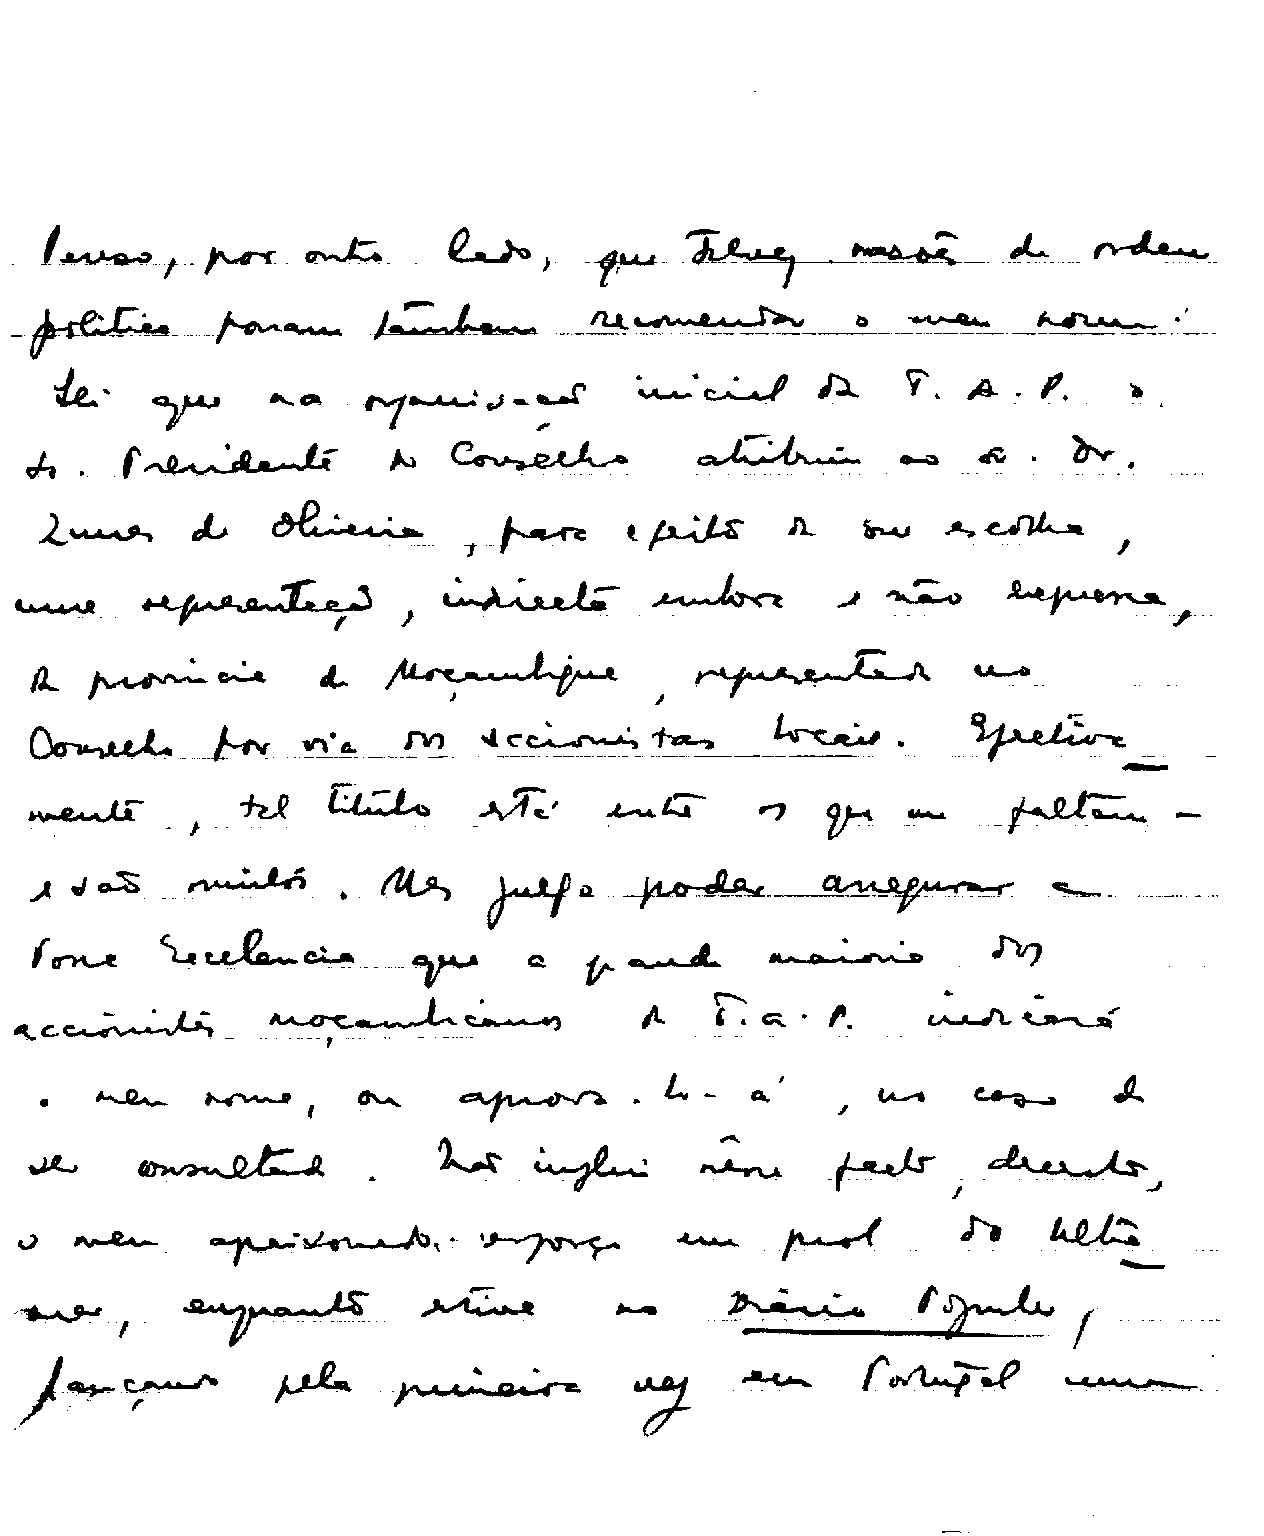 Penso, por outro lado, que talvez razões de ordem
política possam também recomendar o meu nome.
Sei que na organização inicial da T. A. P. o
Sr. Presidente do Conselho atribuiu ao Sr. Dr.
Nunes de Oliveira, para efeito da sua escolha,
uma representação, indirecta embora e não expressa,
da província de Moçambique, representada no
Conselho por via dos accionistas locais. Efectiva
mente, tal título está entre os que me faltam -
e são muitos. Mas julgo poder assegurar a
Vossa Excelencia que a grande maioria dos
accionistas moçambicanos da T. A. P. indicará
o meu nome, ou aprova-lo-á, no caso de
ser consultada. Não influi nesse facto, decerto,
o meu apaixonado esforço em prol do Ultra
mar, enquanto estive no Diário Popular,
lançando pela primeira vez em Portugal uma